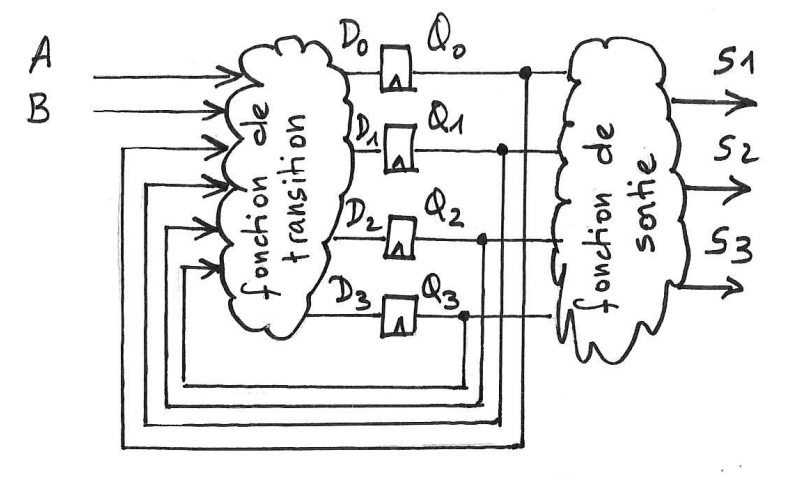 A
B
fonction de
transition
D0
Q0
D1
Q1
D2
Q2
D3
Q3
fonction de
sortie
S1
S2
S3